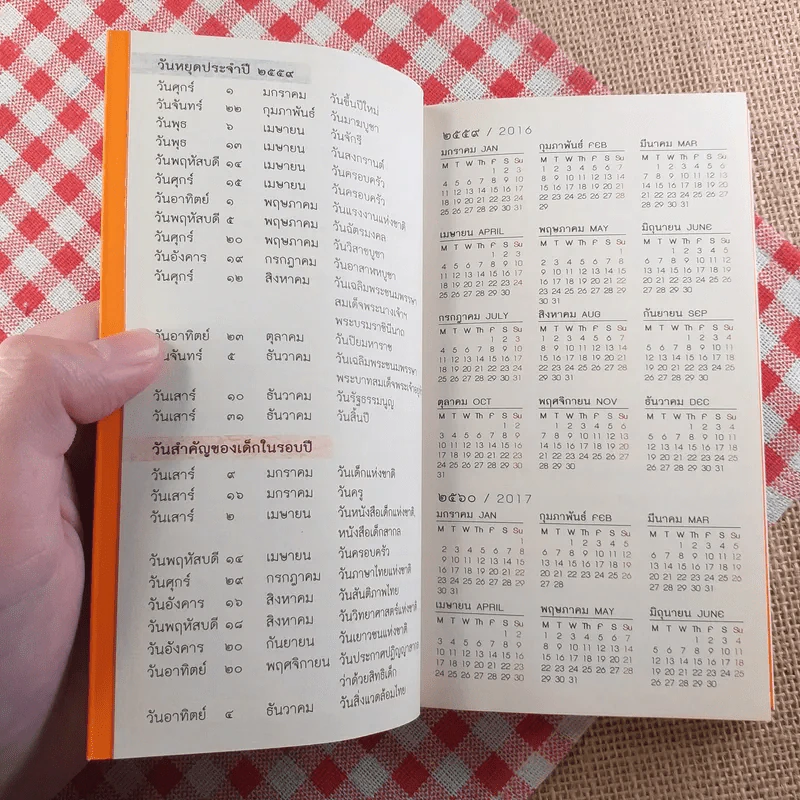 วันหยุดประจำปี ๒๕๕๙
วันศุกร์ ๑ มกราคม วันขึ้นปีใหม่
วันจันทร์ ๒๒ กุมภาพันธ์ วันมาฆบูชา
วันพุธ ๖ เมษายน วันจักรี
วันพุธ ๑๓ เมษายน วันสงกรานต์
วันพฤหัสบดี ๑๔ เมษายน วันครอบครัว
วันศุกร์ ๑๕ เมษายน วันครอบครัว
วันอาทิตย์ ๑ พฤษภาคม วันแรงงานแห่งชาติ
วันพฤหัสบดี ๕ พฤษภาคม วันฉัตรมงคล
วันศุกร์ ๒๐ พฤษภาคม วันวิสาขบูชา
วันอังคาร ๑๙ กรกฎาคม วันอาสาฬหบูชา
วันศุกร์ ๑๒ สิงหาคม วันเฉลิมพระชนมพรรษา
สมเด็จพระนางเจ้าฯ
พระบรมราชินีนาถ
วันอาทิตย์ ๒๓ ตุลาคม วันปิยมหาราช
วันจันทร์ ๕ ธันวาคม วันเฉลิมพระชนมพรรษา
พระบาทสมเด็จพระเจ้าอยู่หัว
วันเสาร์ ๑๐ ธันวาคม วันรัฐธรรมนูญ
วันเสาร์ ๓๑ ธันวาคม วันสิ้นปี
วันสำคัญของเด็กในรอบปี
วันเสาร์ ๙ มกราคม วันเด็กแห่งชาติ
วันเสาร์ ๑๖ มกราคม วันครู
วันเสาร์ ๒ เมษายน วันหนังสือเด็กแห่งชาติ,
หนังสือเด็กสากล
วันพฤหัสบดี ๑๔ เมษายน วันครอบครัว
วันศุกร์ ๒๙ กรกฎาคม วันภาษาไทยแห่งชาติ
วันอังคาร ๑๖ สิงหาคม วันสันติภาพไทย
วันพฤหัสบดี ๑๘ สิงหาคม วันวิทยาศาสตร์แห่งชาติ
วันอังคาร ๒๐ กันยายน วันเยาวชนแห่งชาติ
วันอาทิตย์ ๒๐ พฤศจิกายน วันประกาศปฏิญญาสากล
ว่าด้วยสิทธิเด็ก
วันอาทิตย์ ๔ ธันวาคม วันสิ่งแวดล้อมไทย
๒๕๕๙ / 2016
มกราคม JAN
M T W Th F S Su
1 2 3
4 5 6 7 8 9 10
11 12 13 14 15 16 17
18 19 20 21 22 23 24
25 26 27 28 29 30 31
กุมภาพันธ์ FEB
M T W Th F S Su
1 2 3 4 5 6 7
8 9 10 11 12 13 14
15 16 17 18 19 20 21
22 23 24 25 26 27 28
29
มีนาคม MAR
M T W Th F S Su
1 2 3 4 5 6
7 8 9 10 11 12 13
14 15 16 17 18 19 20
21 22 23 24 25 26 27
28 29 30 31
เมษายน APRIL
M T W Th F S Su
1 2 3
4 5 6 7 8 9 10
11 12 13 14 15 16 17
18 19 20 21 22 23 24
25 26 27 28 29 30
พฤษภาคม MAY
M T W Th F S Su
1
2 3 4 5 6 7 8
9 10 11 12 13 14 15
16 17 18 19 20 21 22
23 24 25 26 27 28 29
30 31
มิถุนายน JUNE
M T W Th F S Su
1 2 3 4 5
6 7 8 9 10 11 12
13 14 15 16 17 18 19
20 21 22 23 24 25 26
27 28 29 30
กรกฎาคม JULY
M T W Th F S Su
1 2 3
4 5 6 7 8 9 10
11 12 13 14 15 16 17
18 19 20 21 22 23 24
25 26 27 28 29 30 31
สิงหาคม AUG
M T W Th F S Su
1 2 3 4 5 6 7
8 9 10 11 12 13 14
15 16 17 18 19 20 21
22 23 24 25 26 27 28
29 30 31
กันยายน SEP
M T W Th F S Su
1 2 3 4
5 6 7 8 9 10 11
12 13 14 15 16 17 18
19 20 21 22 23 24 25
26 27 28 29 30
ตุลาคม OCT
M T W Th F S Su
1 2
3 4 5 6 7 8 9
10 11 12 13 14 15 16
17 18 19 20 21 22 23
24 25 26 27 28 29 30
31
พฤศจิกายน NOV
M T W Th F S Su
1 2 3 4 5 6
7 8 9 10 11 12 13
14 15 16 17 18 19 20
21 22 23 24 25 26 27
28 29 30
ธันวาคม DEC
M T W Th F S Su
1 2 3 4
5 6 7 8 9 10 11
12 13 14 15 16 17 18
19 20 21 22 23 24 25
26 27 28 29 30 31
๒๕๖๐ / 2017
มกราคม JAN
M T W Th F S Su
1
2 3 4 5 6 7 8
9 10 11 12 13 14 15
16 17 18 19 20 21 22
23 24 25 26 27 28 29
30 31
กุมภาพันธ์ FEB
M T W Th F S Su
1 2 3 4 5
6 7 8 9 10 11 12
13 14 15 16 17 18 19
20 21 22 23 24 25 26
27 28
มีนาคม MAR
M T W Th F S Su
1 2 3 4 5
6 7 8 9 10 11 12
13 14 15 16 17 18 19
20 21 22 23 24 25 26
27 28 29 30 31
เมษายน APRIL
M T W Th F S Su
1 2
3 4 5 6 7 8 9
10 11 12 13 14 15 16
17 18 19 20 21 22 23
24 25 26 27 28 29 30
พฤษภาคม MAY
M T W Th F S Su
1 2 3 4 5 6 7
8 9 10 11 12 13 14
15 16 17 18 19 20 21
22 23 24 25 26 27 28
29 30 31
มิถุนายน JUNE
M T W Th F S Su
1 2 3 4
5 6 7 8 9 10 11
12 13 14 15 16 17 18
19 20 21 22 23 24 25
26 27 28 29 30